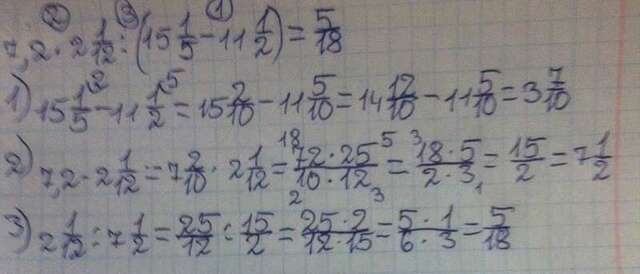 ② ③ ①
7,2 · 2 1/12 : (15 1/5 - 11 1/2) = 5/18
1) 15 1/5 ² - 11 1/2 ⁵ = 15 2/10 - 11 5/10 = 14 12/10 - 11 5/10 = 3 7/10
18 5 3
2) 7,2 · 2 1/12 = 7 2/10 · 2 1/12 = 72 · 25/10 · 12 = 18 · 5/2 · 3 = 15/2 = 7 1/2
2 3 1
3) 2 1/12 : 7 1/2 = 25/12 : 15/2 = 25 · 2/12 · 15 = 5 · 1/6 · 3 = 5/18